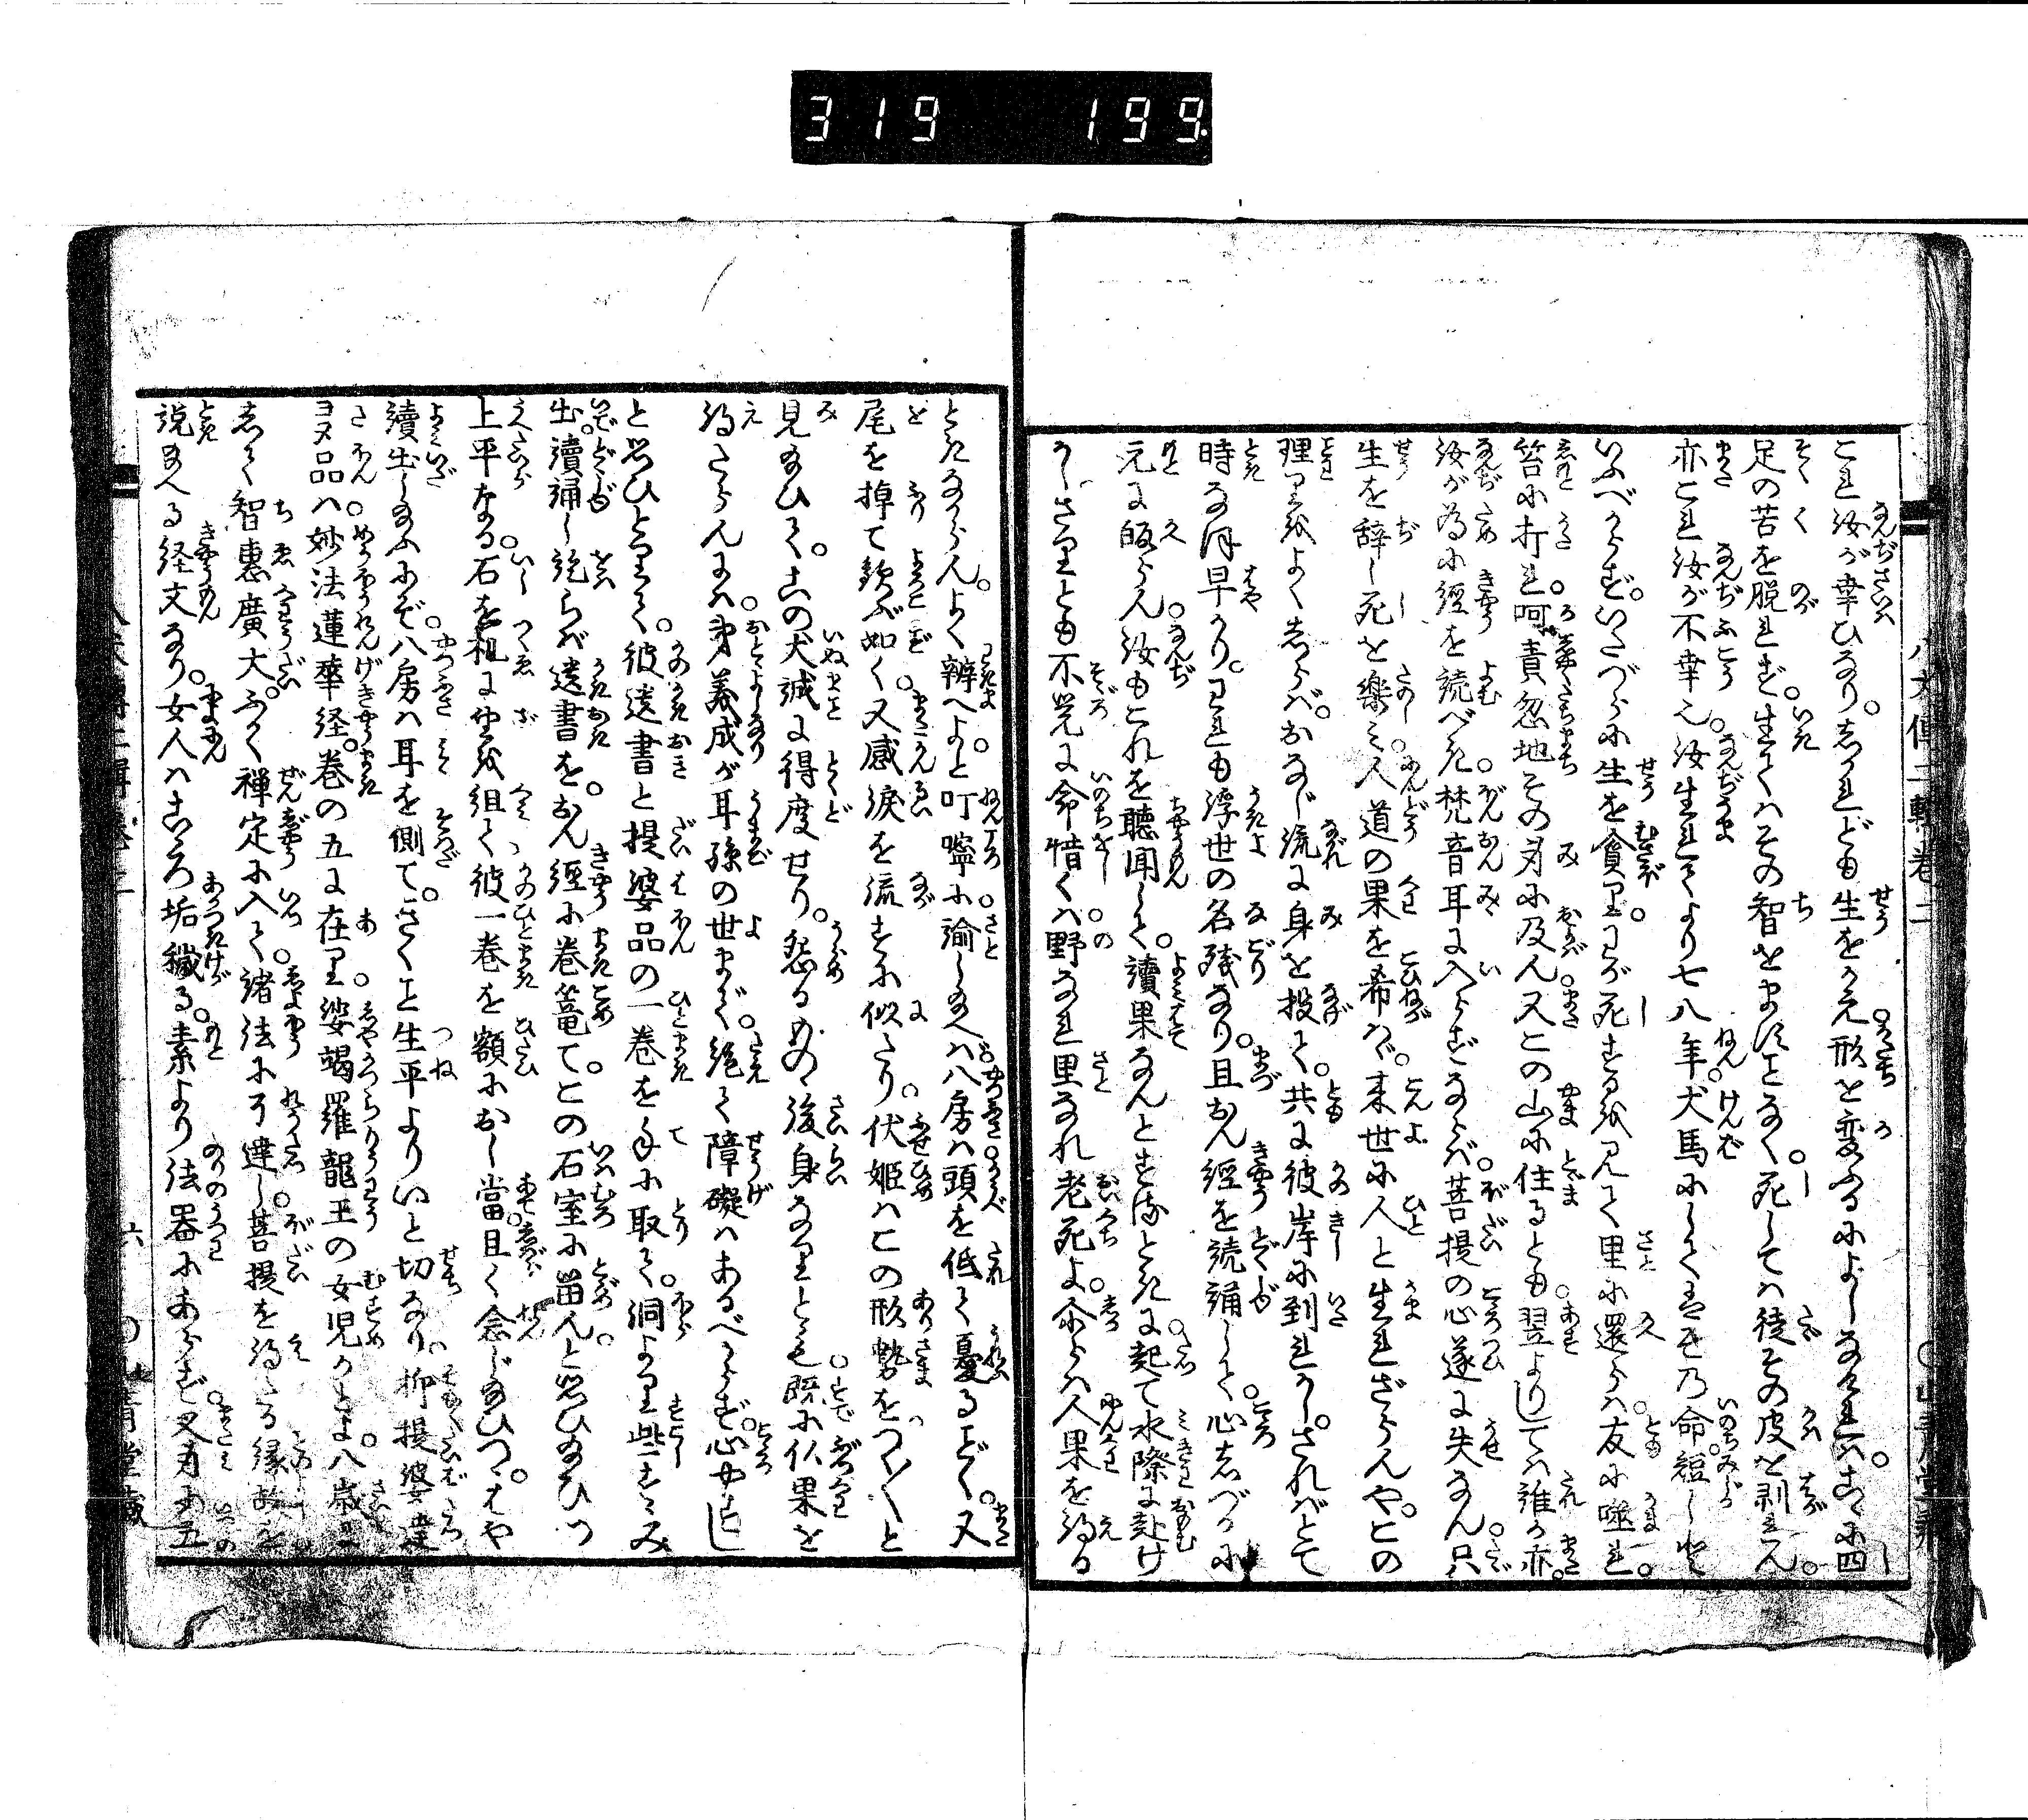 319 199
八犬傳二輯卷二
山青堂藏
これ汝が幸ひなり。しかれども生をかえ形を変ふるによしなければ。こゝに四
足の苦を脱れず。生てはその智をますことなく。死しては徒その皮を剥れん。
亦これ汝が不幸也。汝生れてより七八年犬馬にしてはその命短しと
いふべからず。いたづらに生を貪り。わが死するを見て里に還らば友に噬れ。
笞に打れ。呵責忽地その身に及ん。又この山に住るとも。翌よりして誰か亦。
汝が為に經を読べき。梵音耳に入らずならば。菩提の心遂に失なん。只
生を辞し死を樂み。人道の果を希はゞ。来世に人と生れざらんや。この
理りをよくしらば。おなじ流に身を投て。共に彼岸に到れかし。さればとて
時なほ早かり。これも浮世の名殘なり。且おん經を読誦して。心しづかに
元に皈らん。汝もこれを聽聞して。讀果なんとするときに。起て水際に赴け
かし。さりとも不覚に命惜くは。野なれ里なれ老死よ。尓らは人果を得る
ときなからん。よく辨へよ。と叮嚀に諭し給へば。八房は頭を低て憂るごとく。又
尾を掉て歓ぶ如く。又感涙を流すに似たり。伏姫はこの形勢をつく〴〵と
見給ひて。この犬誠に得度せり。怨るものゝ後身なりとも。既に仏果を
得たらんには。弟義成が耳孫の世まで。絶て障礙はあるべからず。心やすし
と思ひとりて。彼遺書と提婆品の一巻を手に取て。洞より些すゝみ
出。讀誦し訖らば遺書を。おん經に巻篭て。この石室に畄んと思ひ給ひつ
上平なる。石を机に坐を組て。彼一巻を額におし當。且く念じ給ひつ。はや
讀出し給ふにぞ。八房は耳を側て。きくこと生平よりいと切なり。抑提婆達
多品は。妙法蓮華経。巻の五に在り。娑竭羅龍王の女児かとよ。八歳に
して智惠廣大。ふかく禪定に入て。諸法に了達し。菩提を得たる縁故を
説給へる経文なり。女人はこゝろ垢穢る。素より法器にあらず。又身に五
六